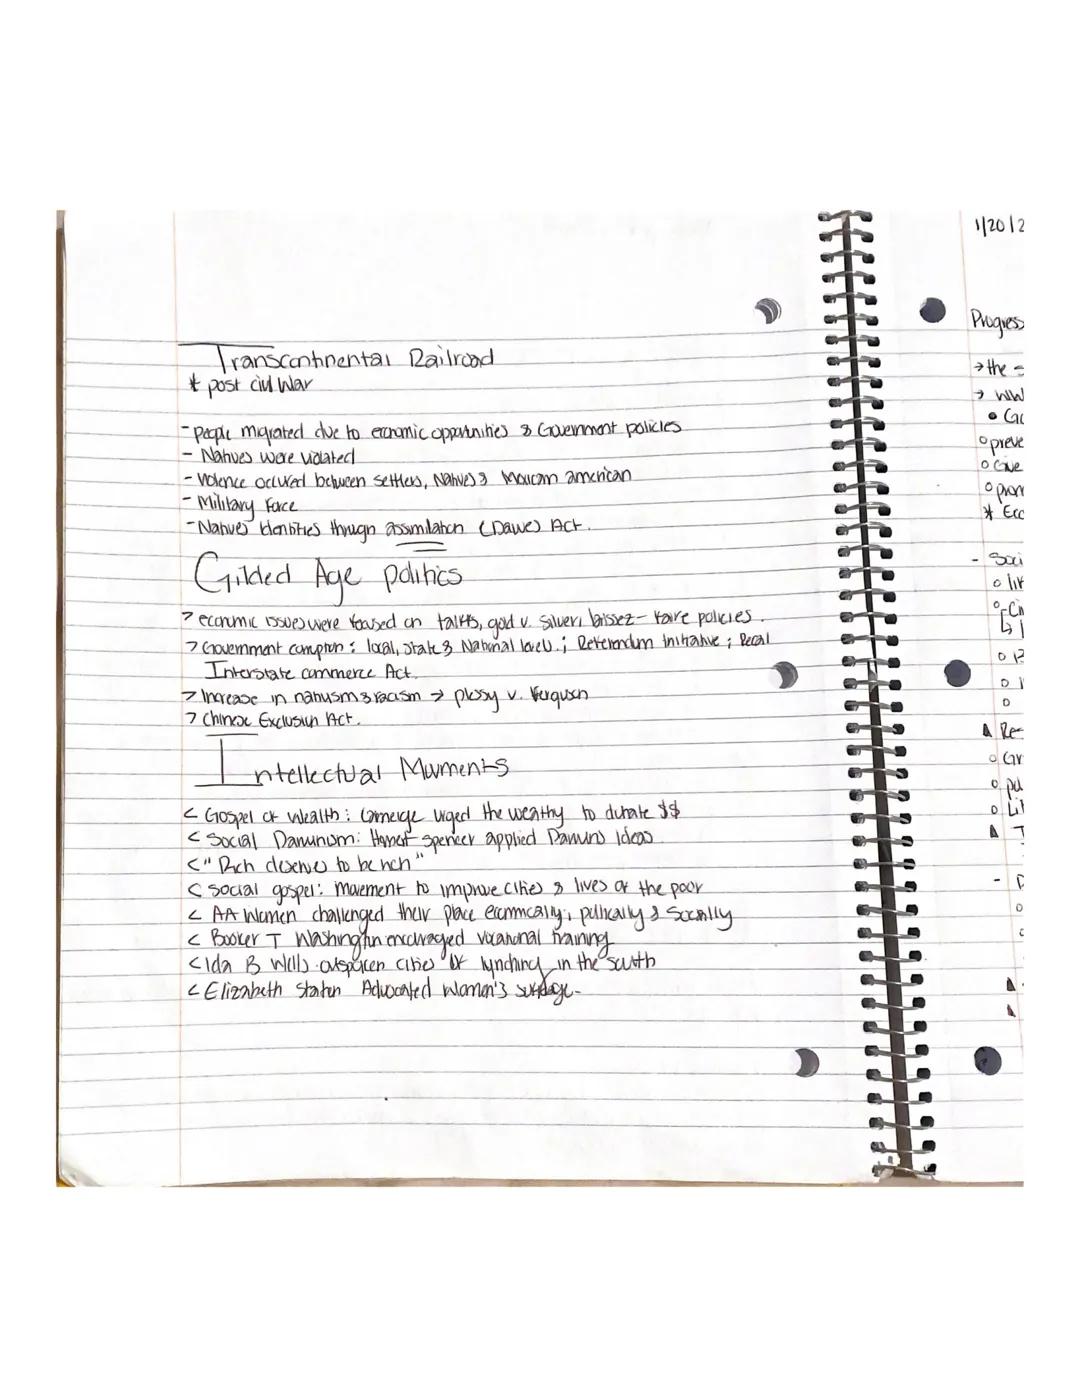 Transcontinental Railroad
* post civil War
- people migrated due to economic opportunities & Government policies
- Natives were violated
- Violence occured between settlers, Natives & Mexican american
- Military Force
- Natives identities through assimilation (Dawes) Act.
Gilded Age politics
> economic issues were focused on tariffs, gold v. silver, laissez-faire policies.
> Government corruption: local, State & National level.; Referendum initiative; Recal
Interstate commerce Act.
> Increase in nativism & racism → plessy v. Ferguson
> Chinese Exclusion Act.
Intellectual Movments
< Gospel of wealth: Carnegie urged the wealthy to donate $$
< Social Darwinism: Spencer applied Darwins Ideas
< "Rich deserve to be rich"
< Social gospel: Movement to improve cities & lives of the poor
< AA Women challenged their place economically, politically & Socially
< Booker T Washington encouraged vocational training
< Ida B Wells outspoken of lynching in the south
< Elizabeth Advocated Women's suffrage.
1/20/2
Progress
→ the
→ WW
• Go
o preve
o Give
o prom
* Eco
- Soci
o lik